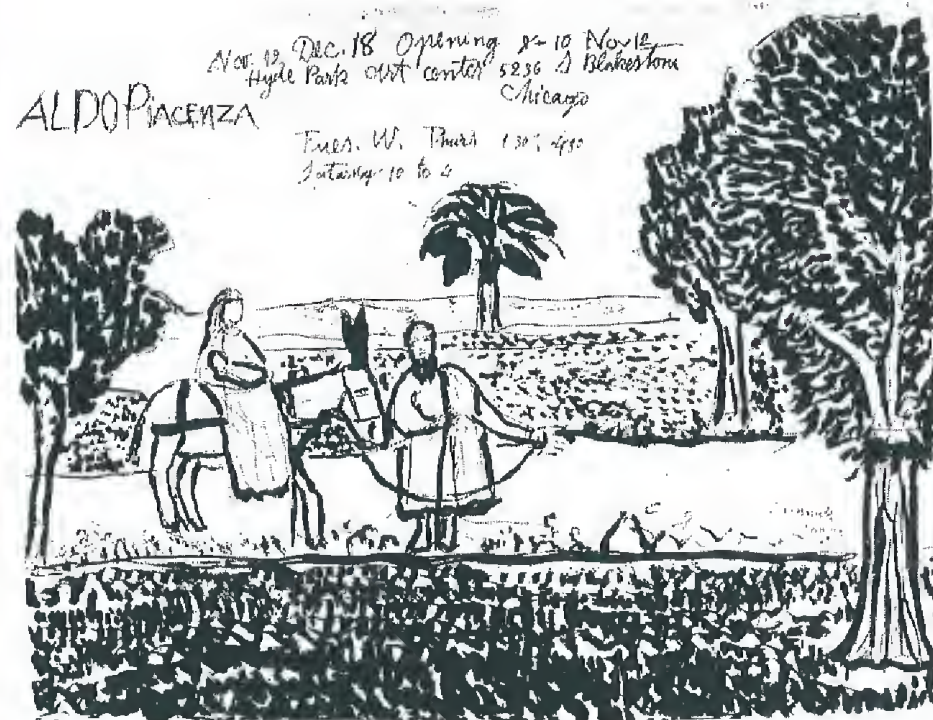 Nov. 12 Dec. 18 Opening 8-10 Nov 12
Hyde Park Art center 5236 S Blakestone
Chicago
ALDO PIACENZA
Tues. W. Thurs 1:30-4:30
Saturday 10 to 4